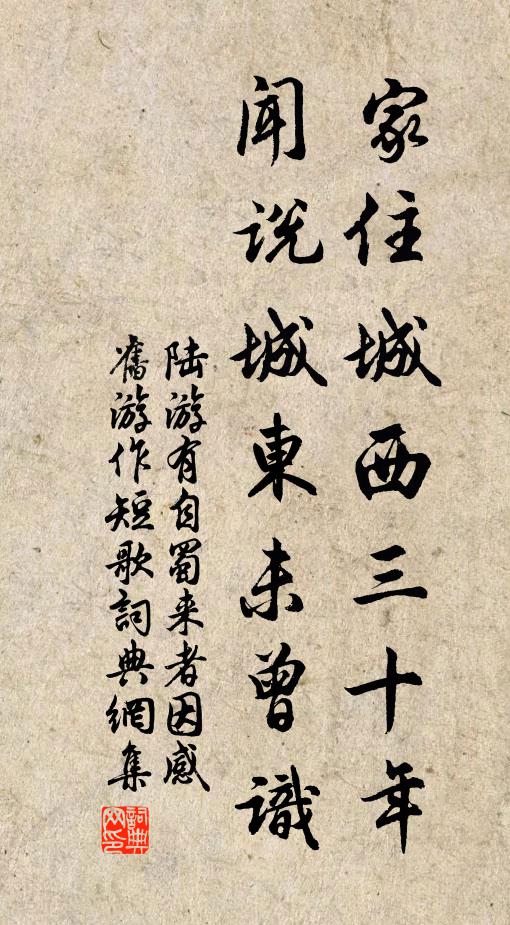 家住城西三十年
聞説城東未曾識
陆游有自蜀来者因感
舊游作短歌詞典網集
詞典
网印